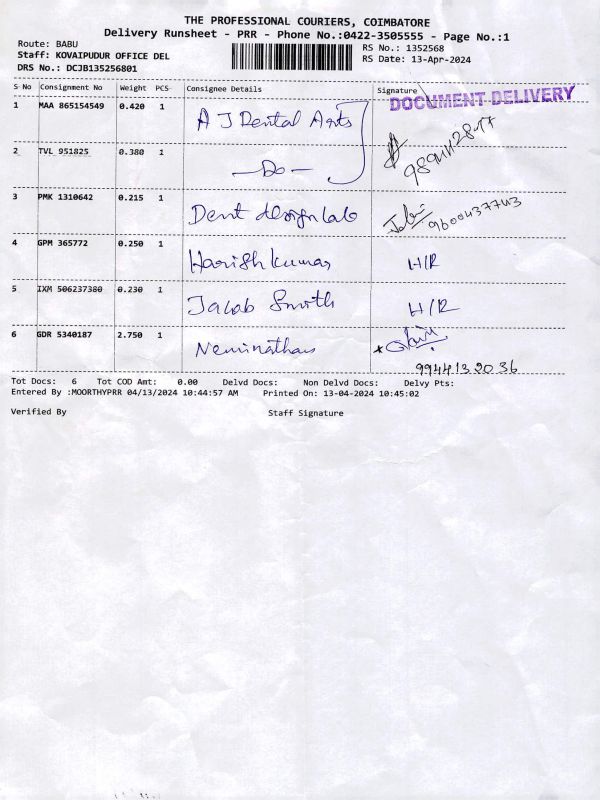 THE PROFESSIONAL COURIERS, COIMBATORE
Delivery Runsheet - PRR - Phone No.:0422-3505555 - Page No.:1
Route: BABU
Staff: KOVAIPUDUR OFFICE DEL
DRS No.: DCJB135256801
RS No.: 1352568
RS Date: 13-Apr-2024
S No Consignment No Weight PCS Consignee Details Signature
DOCUMENT DELIVERY
1 MAA 865154549 0.420 1 A J Dental Arts
2 TVL 951825 0.380 1 —Do—
3 PMK 1310642 0.215 1 Dent design lab 9600437743
4 GPM 365772 0.250 1 Harish kumar H/R
5 IXM 506237380 0.230 1 Jacob Smith H/R
6 GDR 5340187 2.750 1 Neminathan
9944132036
Tot Docs: 6 Tot COD Amt: 0.00 Delvd Docs: Non Delvd Docs: Delvy Pts:
Entered By :MOORTHYPRR 04/13/2024 10:44:57 AM Printed On: 13-04-2024 10:45:02
Verified By Staff Signature